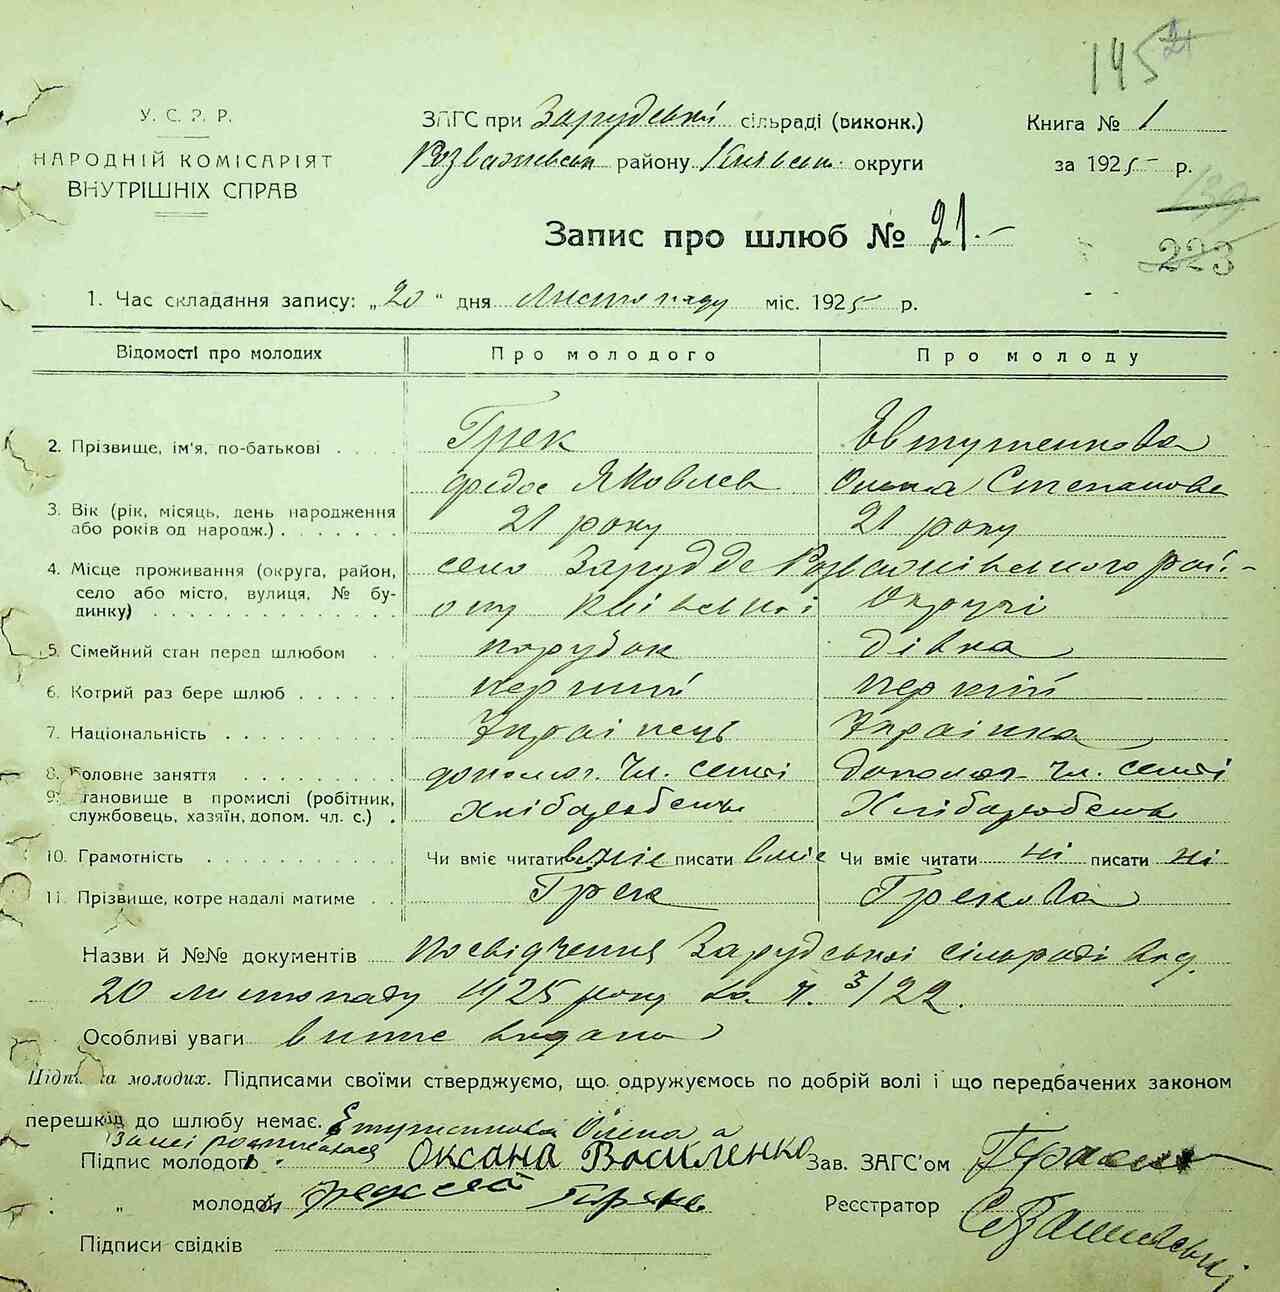 145 21
У. С. Р. Р.
НАРОДНІЙ КОМІСАРІЯТ
ВНУТРІШНІХ СПРАВ
ЗАГС при Зарудській сільраді (виконк.)
Розважівськ району Київськ. округи
Книга № 1
за 1925 р.
139
223
Запис про шлюб № 21.-
1. Час складання запису: „20“ дня Листопаду міс. 1925 р.
Відомості про молодих Про молодого Про молоду
2. Прізвище, ім'я, по-батькові . . . . Грек Євтушенкова
Федос Яковлев Олена Степанова
3. Вік (рік, місяць, день народження або років од народж.) . . . . . . . 21 року 21 року
4. Місце проживання (округа, район, село Заруддє Розважівського рай-
село або місто, вулиця, № будинку) . . . . . . . . . ону Київської Округи
5. Сімейний стан перед шлюбом . . парубок дівка
6. Котрий раз бере шлюб . . . . . перший перший
7. Національність . . . . . . . . Українець Українка
8. Головне заняття . . . . . . . . допомог. чл. семї допомог чл. семї
9. Становище в промислі (робітник, службовець, хазяїн, допом. чл. с.) . Хліборобець Хліборобець
10. Грамотність . . . . . . . . . Чи вміє читати вміє писати вміє Чи вміє читати ні писати ні
11. Прізвище, котре надалі матиме . . Грек Грекова
Назви й №№ документів посвідчення Зарудської сільради від
20 листопаду 1925 року за ч. 3/22.
Особливі уваги вище видано
Підписа молодих. Підписами своїми стверджуємо, що одружуємось по добрій волі і що передбачених законом
перешкід до шлюбу немає. Євтушенкова Олена а
за неї розписалася
Підпис молодого Оксана Василенко Зав. ЗАГС'ом
„ молодої Грек Реєстратор
Підписи свідків